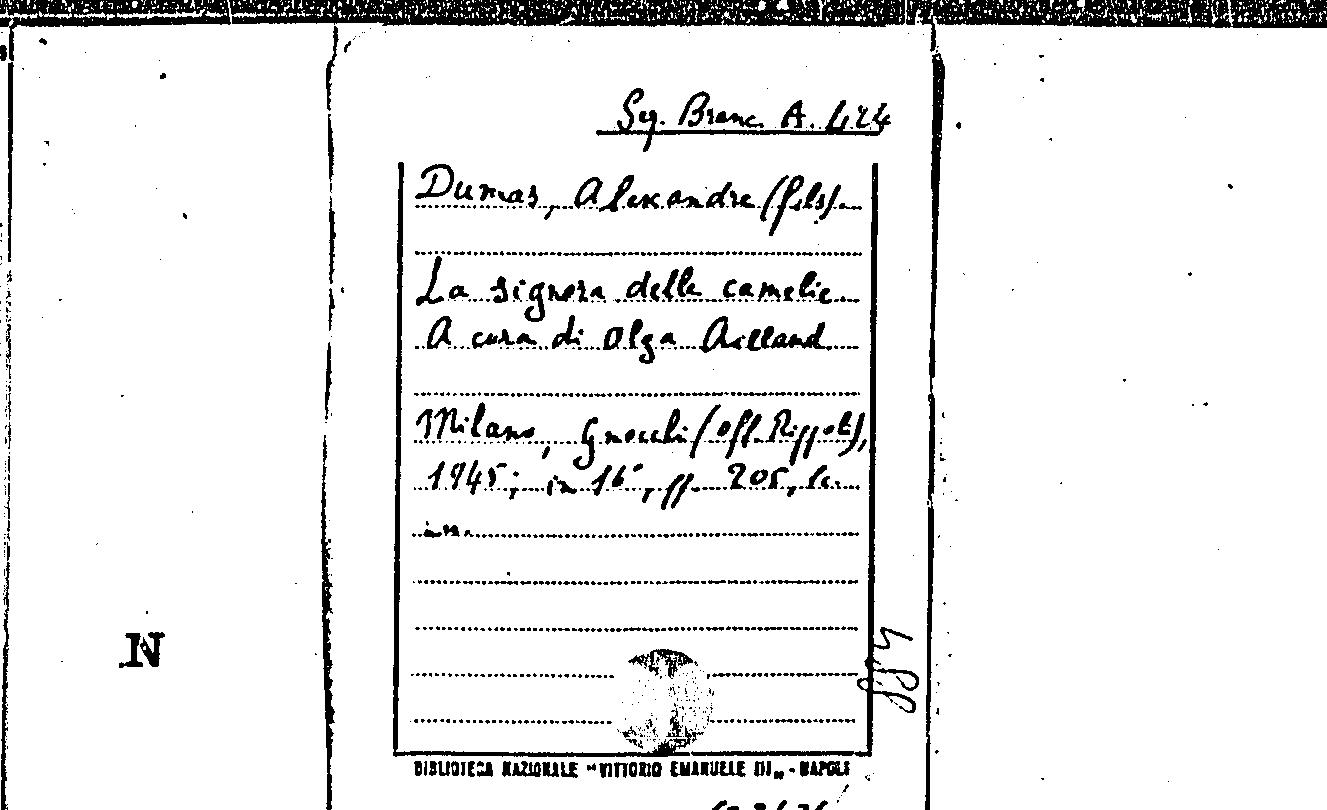 Seg. Branc. A. 424
Dumas, Alexandre (fils).
La signora delle camelie
A cura di Olga
Milano, Gnocchi (off.
1945; in 16°, pp. 205,
N
BIBLIOTECA NAZIONALE "VITTORIO EMANUELE III„ - NAPOLI